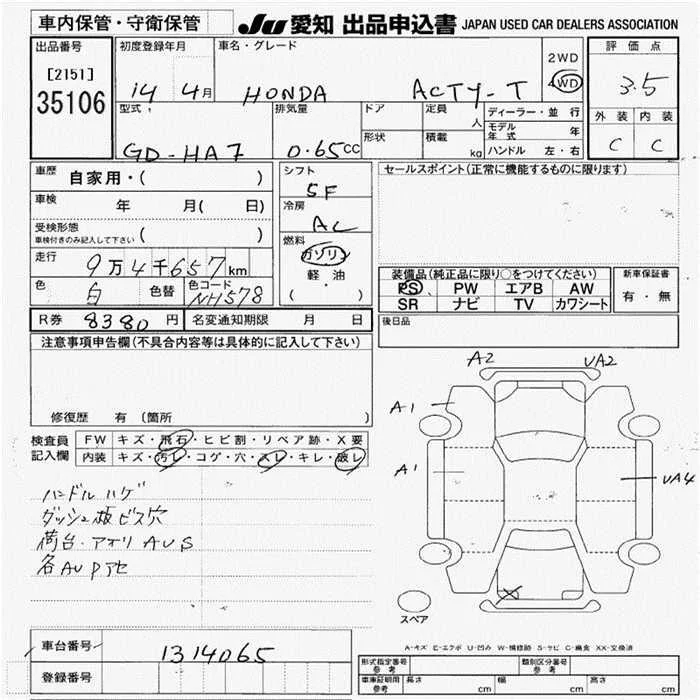 車内保管・守衛保管
JU 愛知 出品申込書 JAPAN USED CAR DEALERS ASSOCIATION
出品番号
[2151]
35106
初度登録年月
14 4月
車名・グレード
HONDA ACTY-T
2WD
4WD
評価点
3.5
外装 内装
C C
型式
GD-HA7
排気量
0.65cc
ドア
形状
定員
人
積載
kg
ディーラー・並行
モデル年式 年
ハンドル 左・右
車歴 自家用・( )
車検 年 月( 日)
受検形態
車検付きのみ記入して下さい ( )
走行 9万4千657km
色 白 色替 色コード NH578
シフト
5F
冷房
AC
燃料
ガソリン
軽油
( ・ )
セールスポイント(正常に機能するものに限ります)
装備品(純正品に限り○をつけてください)
PS PW エアB AW
SR ナビ TV カワシート
新車保証書
有・無
R券 8380円 名変通知期限 月 日
後日品
注意事項申告欄(不具合内容等は具体的に記入して下さい)
修復歴 有 (箇所 )
検査員
記入欄
FW キズ・飛石・ヒビ割・リペア跡・X要
内装 キズ・汚レ・コゲ・穴・スレ・キレ・破レ
ハンドルハゲ
ダッシュ板ビス穴
荷台・アオリAUS
各AUPアセ
A2
UA2
A1
A1
UA4
スペア
A-キズ E-エクボ U-凹み W-補修跡 S-サビ C-腐食 XX-交換済
車台番号 1314065
登録番号
形式指定番号
参考
類別区分番号
参考
車庫証明用
参考
長さ cm 幅 cm 高さ cm